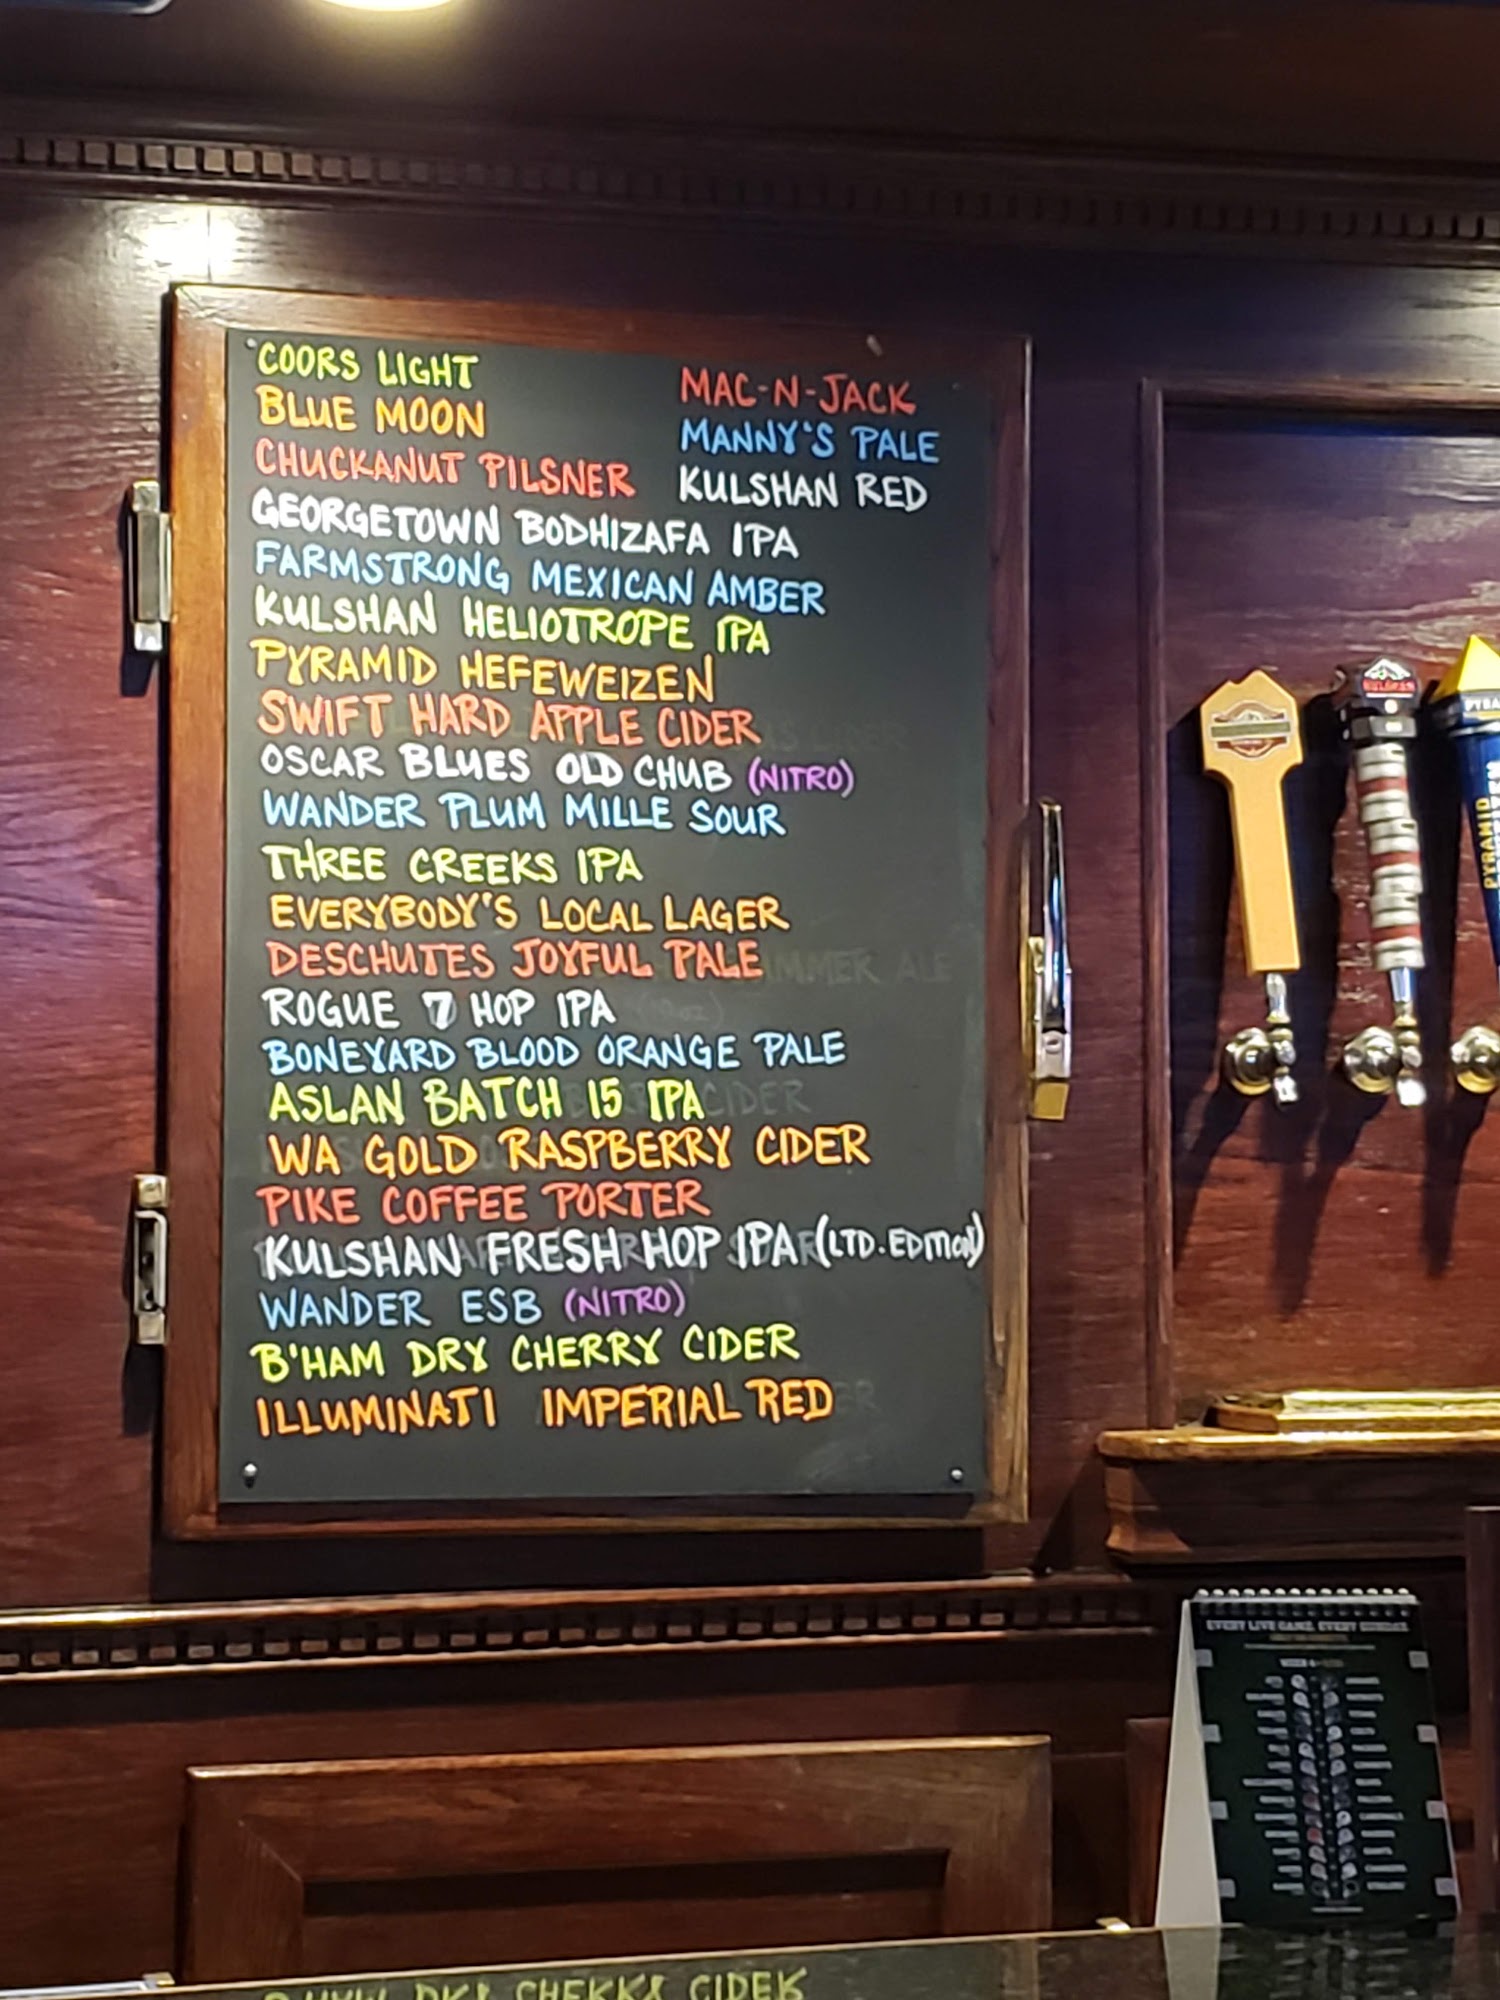 COORS LIGHT
BLUE MOON
CHUCKANUT PILSNER
MAC-N-JACK
MANNY'S PALE
KULSHAN RED
GEORGETOWN BODHIZAFA IPA
FARMSTRONG MEXICAN AMBER
KULSHAN HELIOTROPE IPA
PYRAMID HEFEWEIZEN
SWIFT HARD APPLE CIDER
OSCAR BLUES OLD CHUB (NITRO)
WANDER PLUM MILLE SOUR
THREE CREEKS IPA
EVERYBODY'S LOCAL LAGER
DESCHUTES JOYFUL PALE
ROGUE 7 HOP IPA
BONEYARD BLOOD ORANGE PALE
ASLAN BATCH 15 IPA
WA GOLD RASPBERRY CIDER
PIKE COFFEE PORTER
KULSHAN FRESH HOP IPA (LTD. EDITION)
WANDER ESB (NITRO)
B'HAM DRY CHERRY CIDER
ILLUMINATI IMPERIAL RED
KULSHAN
PYRAMID
EVERY LIVE GAME. EVERY SUNDAY.